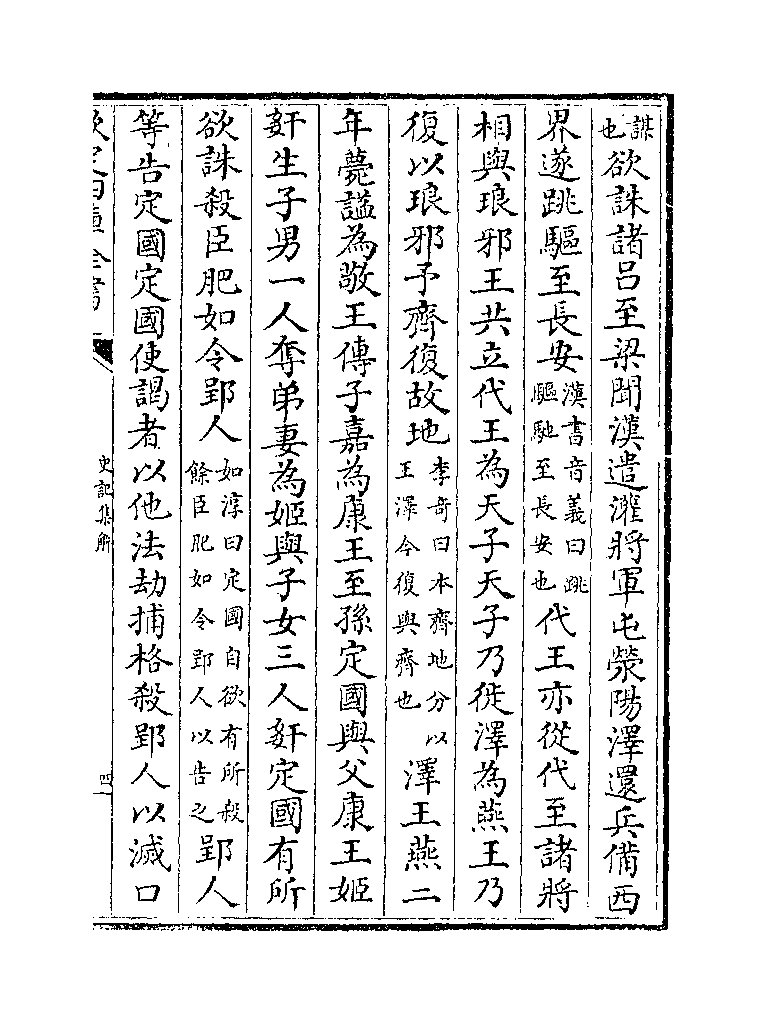 謀也欲誅諸呂至梁聞漢遣灌將軍屯滎陽澤還兵備西
界遂跳驅至長安漢書音義曰跳驅馳至長安也代王亦從代至諸將
相與琅邪王共立代王為天子天子乃徙澤為燕王乃
復以琅邪予齊復故地李奇曰本齊地分以王澤今復與齊也澤王燕二
年薨諡為敬王傳子嘉為康王至孫定國與父康王姬
姧生子男一人奪弟妻為姬與子女三人姧定國有所
欲誅殺臣肥如令郢人如淳曰定國自欲有所殺餘臣肥如令郢人以告之郢人
等告定國定國使謁者以他法劾捕格殺郢人以滅口
欽定四庫全書
史記集解
四